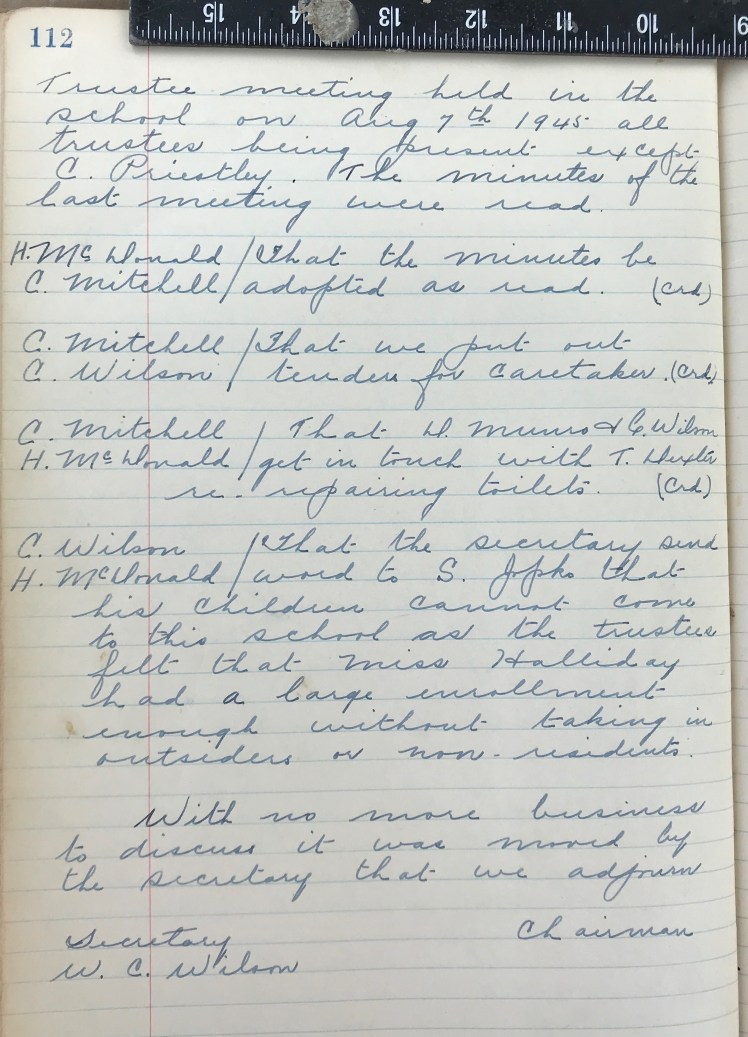 15 14 13 12 11 10 9
112
Trustee meeting held in the
school on Aug 7th 1945 all
trustees being present except
C. Priestley. The minutes of the
last meeting were read.
H. Mc Donald / That the minutes be
C. Mitchell / adopted as read. (Crd)
C. Mitchell / That we put out
C. Wilson / tenders for caretaker. (Crd)
C. Mitchell / That D. Munro & C. Wilson
H. Mc Donald / get in touch with T. Duxler
re- repairing toilets. (Crd)
C. Wilson / That the secretary send
H. McDonald / word to S. that
his children cannot come
to this school as the trustees
felt that Miss Halliday
had a large enrollment
enough without taking in
outsiders or non-residents.
With no more business
to discuss it was moved by
the secretary that we adjourn
Secretary Chairman
W. C. Wilson